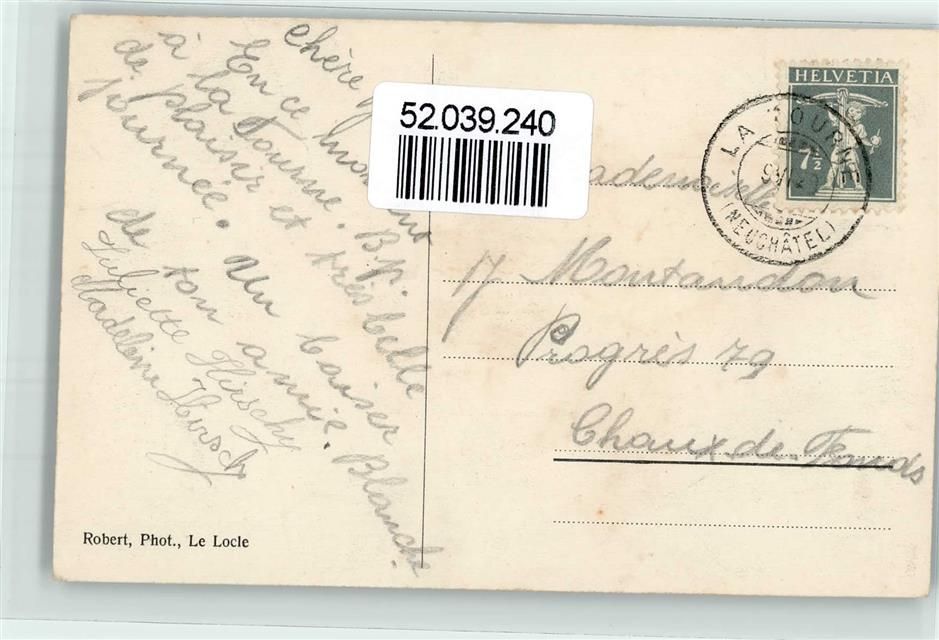 chère
En ce moment
à la Tourne. B.p.
de plaisir et très belle
journée. Un baiser
de ton amie. Blanche.
Juliette Hirschy
Madeleine Hirschy
52.039.240
HELVETIA
7½
LA TOURNE
(NEUCHÂTEL)
Mademoiselle
Y Montandon
Progrès 79
Chaux-de-Fonds
Robert, Phot., Le Locle